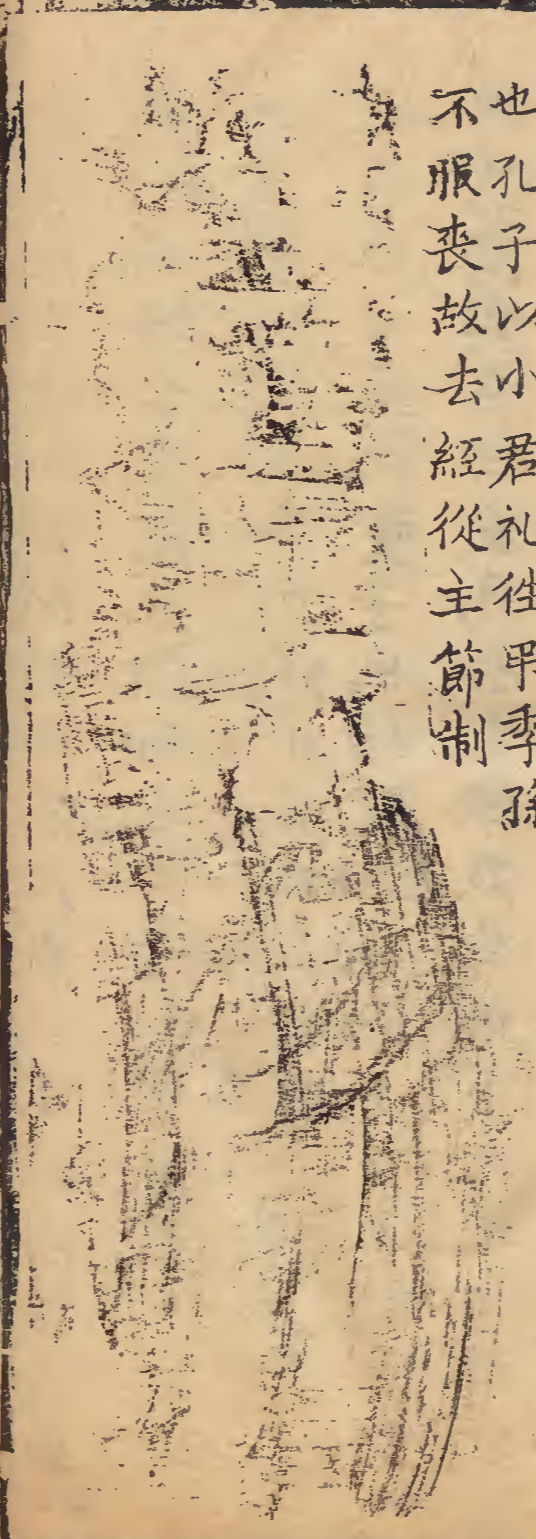 也孔子以小君礼徃吊季孫
不服喪故去絰從主節制